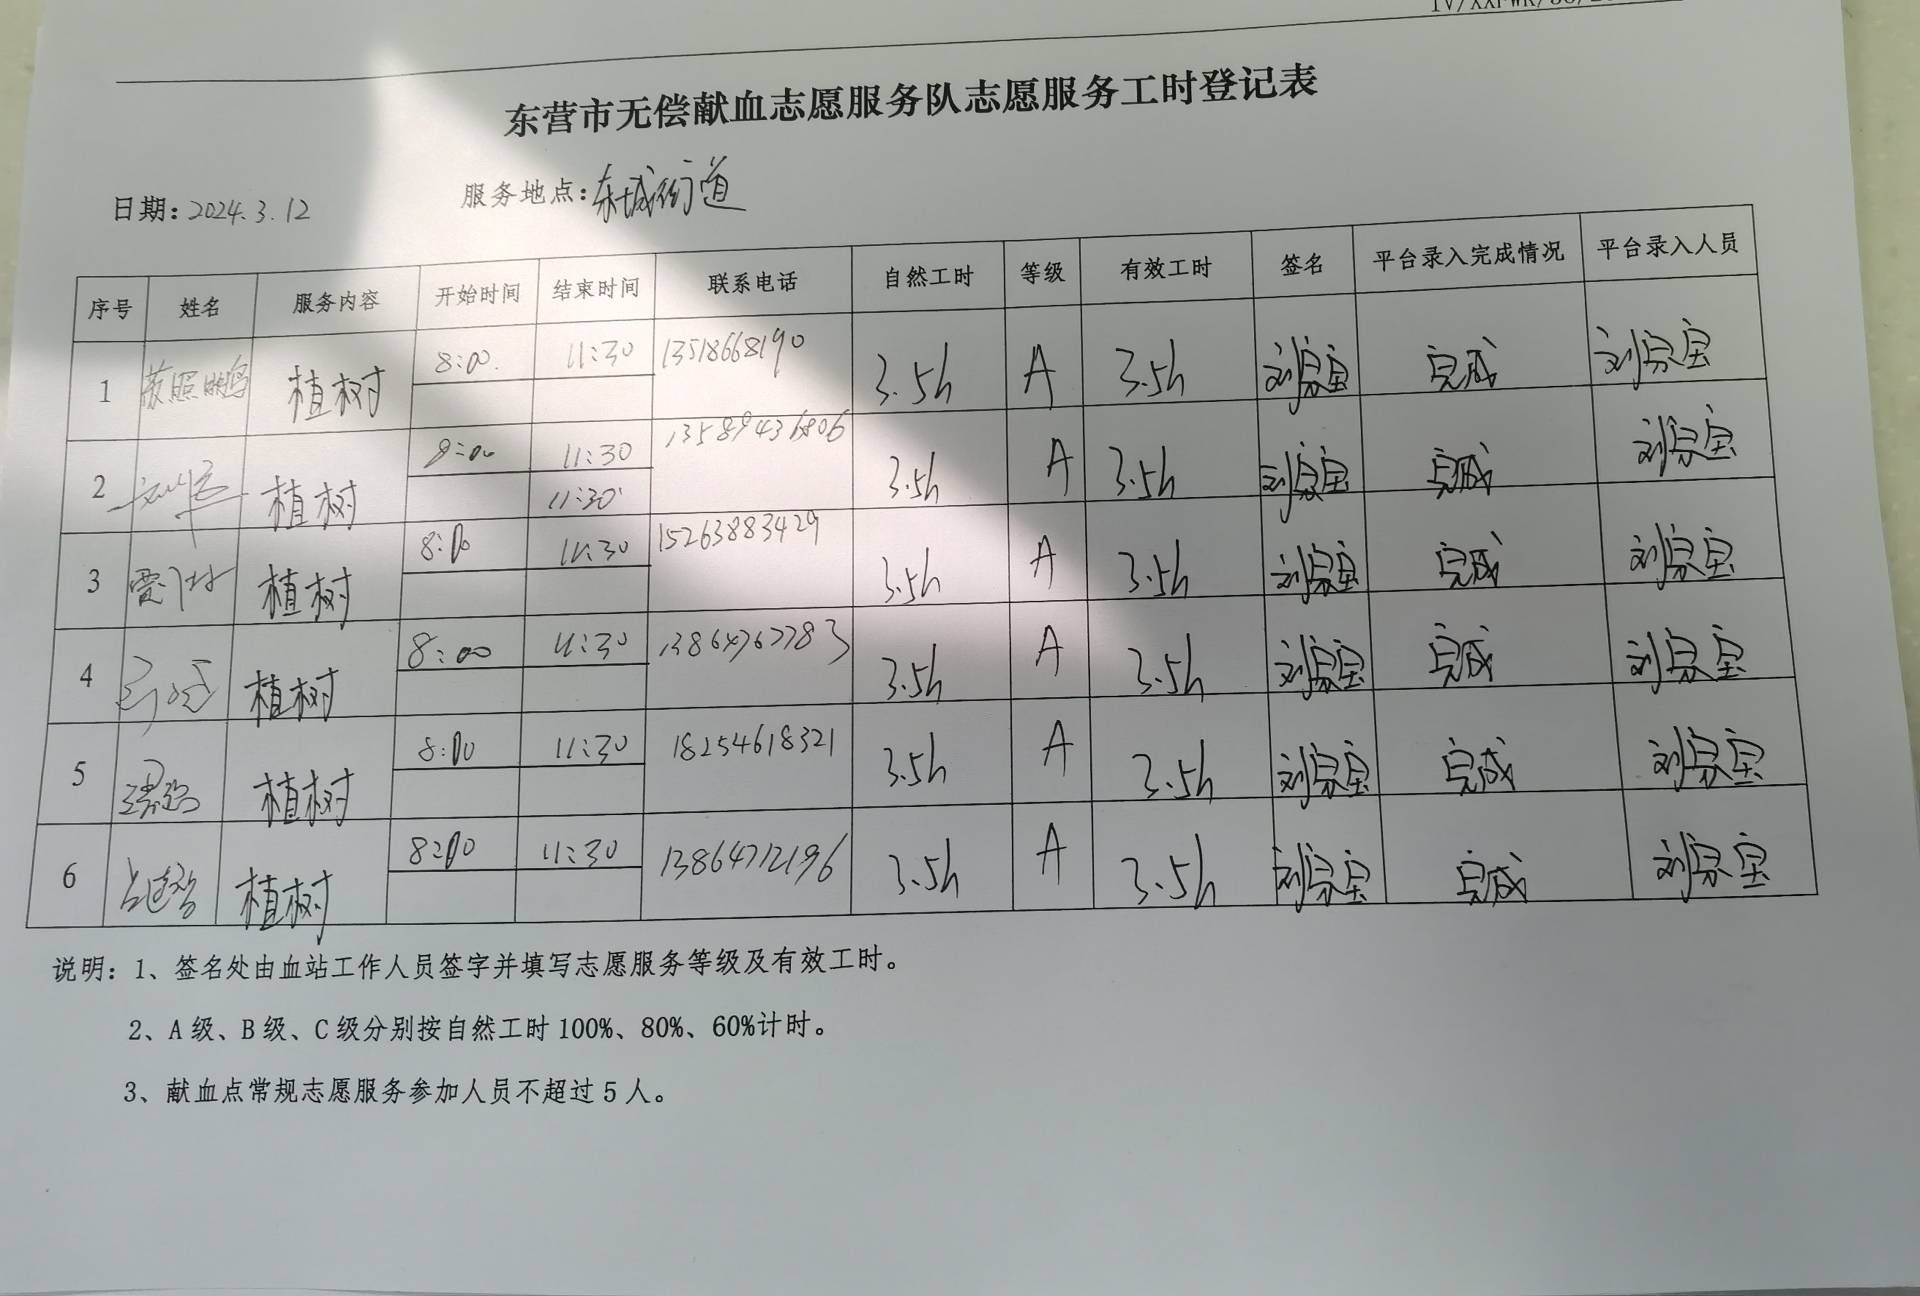 东营市无偿献血志愿服务队志愿服务工时登记表
日期: 2024.3.12 服务地点: 东城街道
序号 姓名 服务内容 开始时间 结束时间 联系电话 自然工时 等级 有效工时 签名 平台录入完成情况 平台录入人员
1 植树 8:00 11:30 13518668190 3.5h A 3.5h 刘宗宝 完成 刘宗宝
2 植树 8:00 11:30 13589436806 3.5h A 3.5h 刘宗宝 完成 刘宗宝
11:30
3 植树 8:00 11:30 15263883429 3.5h A 3.5h 刘宗宝 完成 刘宗宝
4 植树 8:00 11:30 13864767783 3.5h A 3.5h 刘宗宝 完成 刘宗宝
5 植树 8:00 11:30 18254618321 3.5h A 3.5h 刘宗宝 完成 刘宗宝
6 植树 8:00 11:30 13864712196 3.5h A 3.5h 刘宗宝 完成 刘宗宝
说明: 1、签名处由血站工作人员签字并填写志愿服务等级及有效工时。
2、A级、B级、C级分别按自然工时100%、80%、60%计时。
3、献血点常规志愿服务参加人员不超过5人。